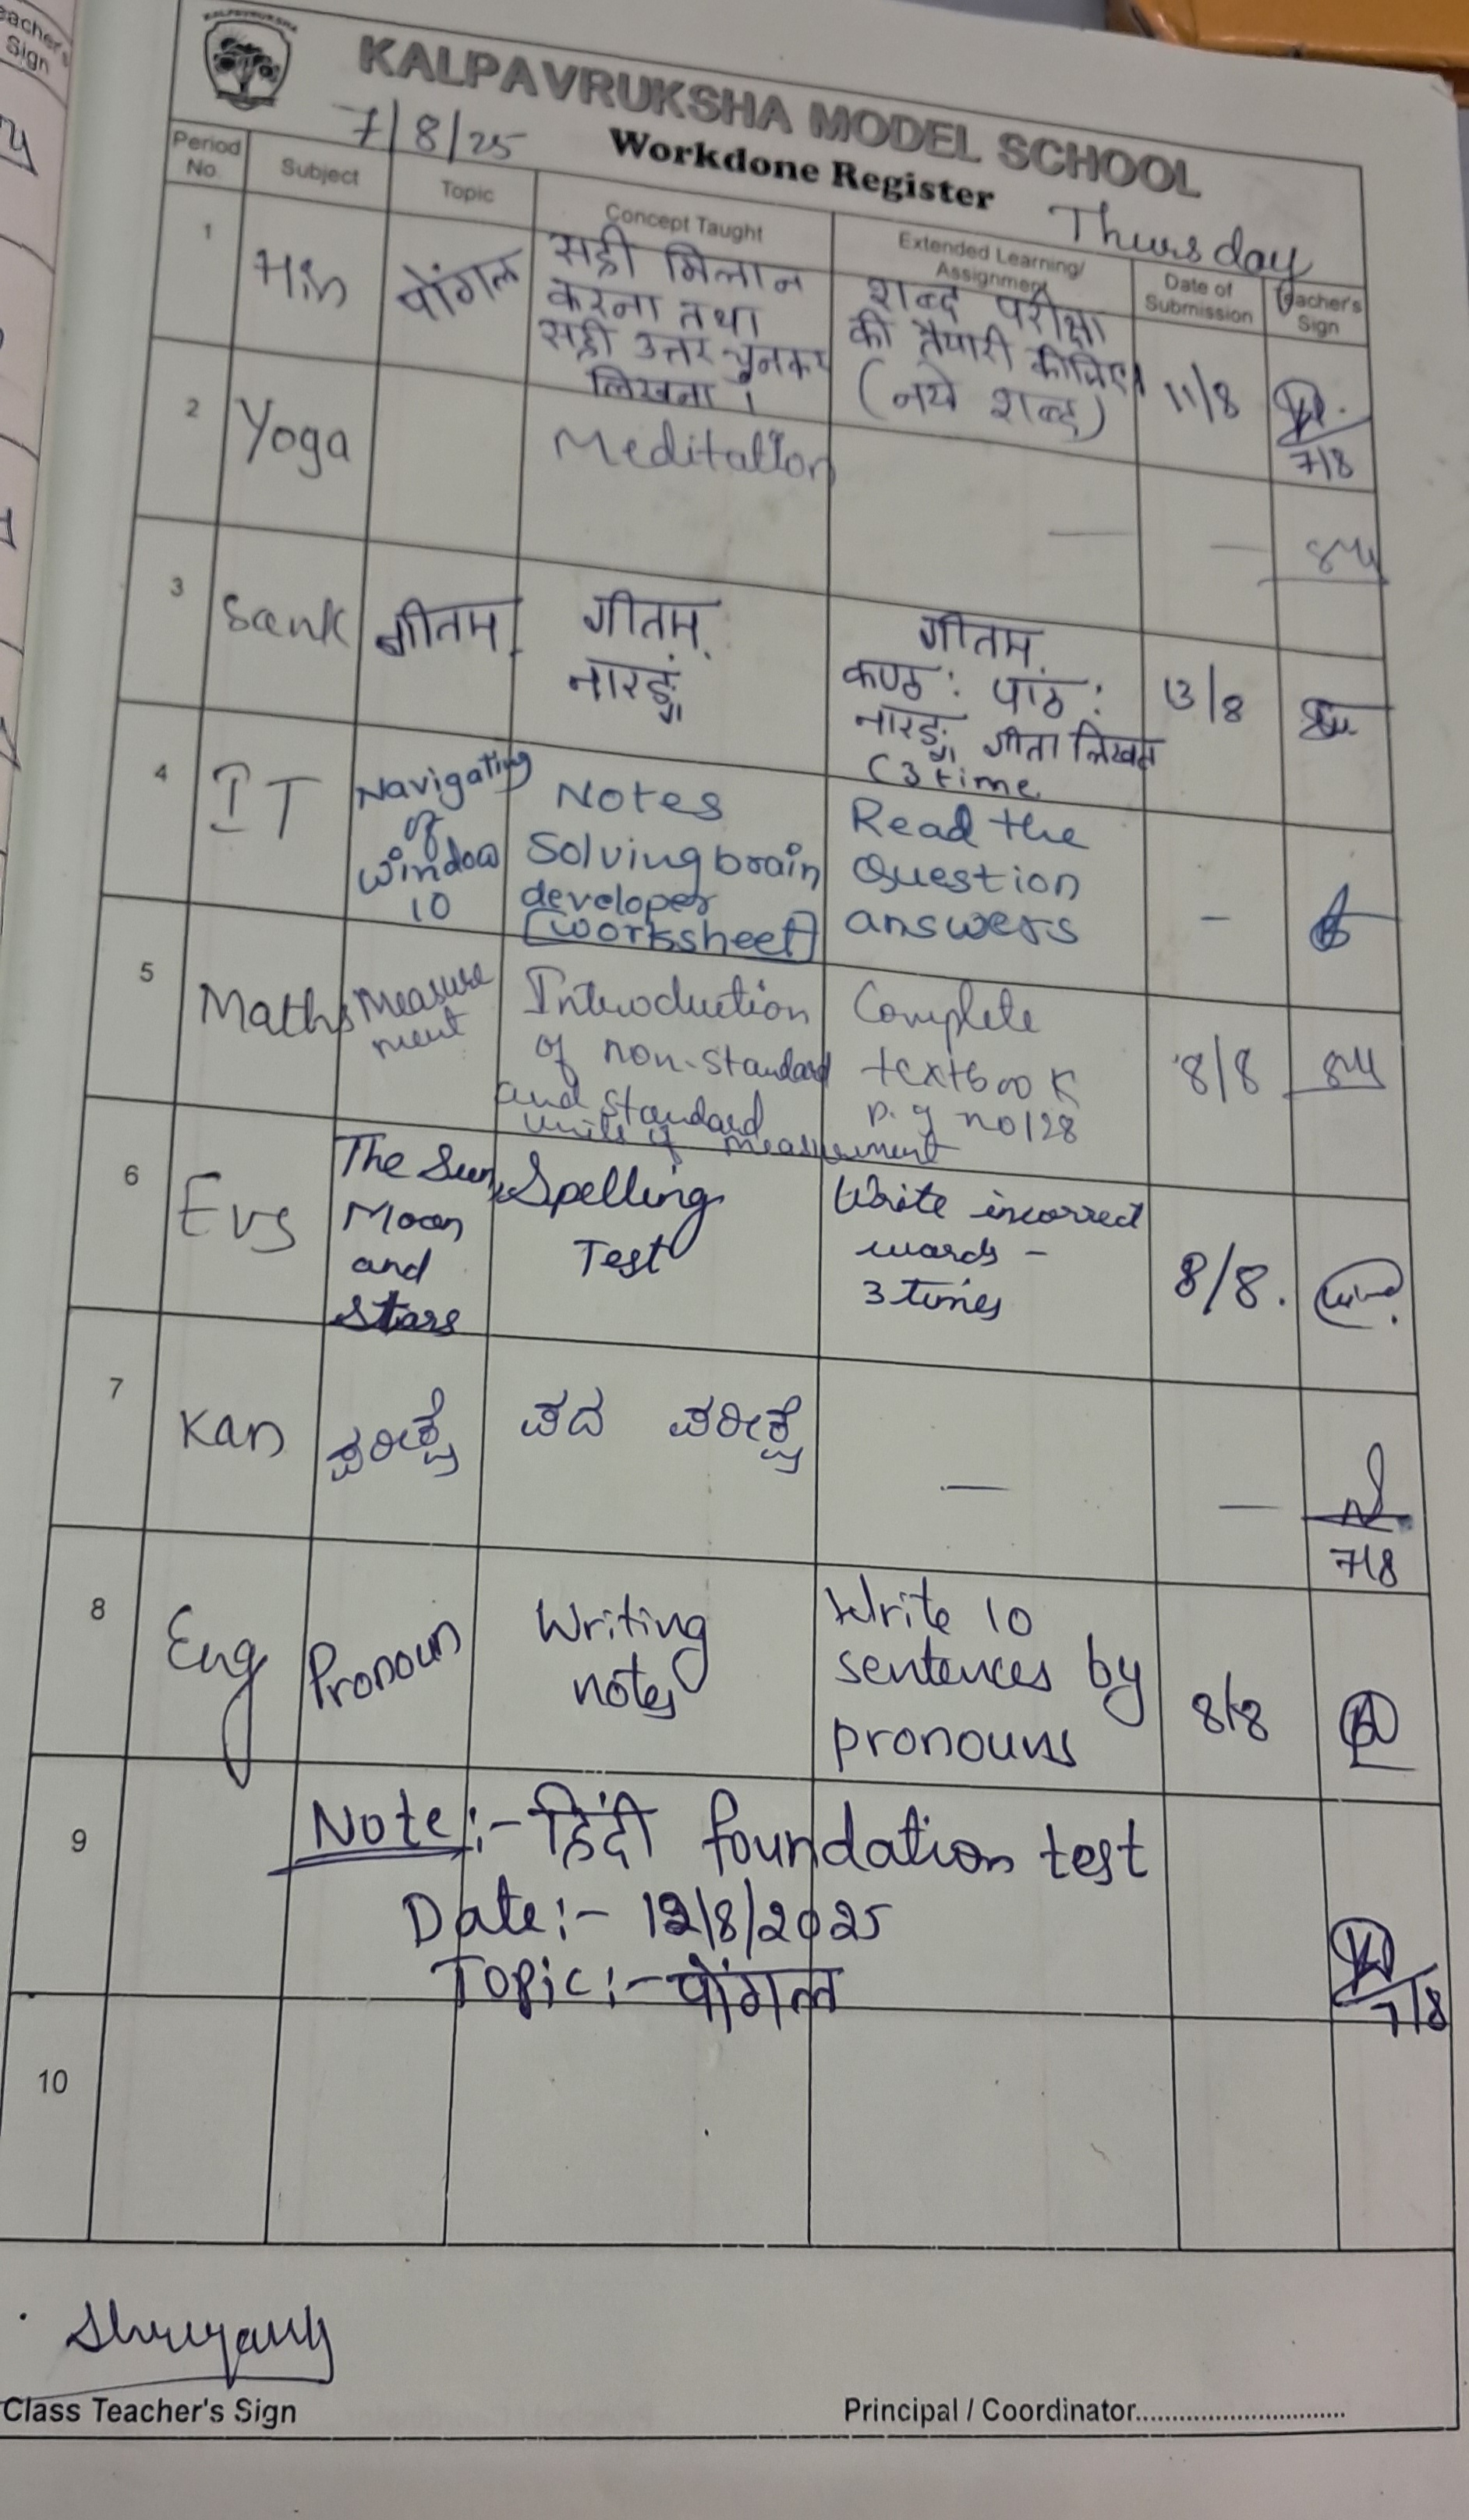 KALPAVRUKSHA
KALPAVRUKSHA MODEL SCHOOL
7/8/25
Workdone Register
Thursday
Period No.
Subject
Topic
Concept Taught
Extended Learning/
Assignment
Date of
Submission
Teacher's
Sign
1
Hin
पोंगल
सही मिलान
करना तथा
सही उत्तर चुनकर
लिखना ।
शब्द परीक्षा
की तैयारी कीजिए।
(नये शब्द)
11/8
7/8
2
Yoga
Meditation
—
—
3
Sank
गीतम्
गीतम्
नारङ्गं
गीतम्
कण्ठः पाठः
नारङ्गं गीता लिखत
(3 time
13/8
4
IT
Navigating
of
window
10
Notes
Solving brain
developer
(worksheet)
Read the
question
answers
-
5
Maths
Measure
ment
Introduction
of non-standard
and standard
units of measurement
Complete
textbook
p.g no 128
8/8
6
Evs
The Sun,
Moon
and
Stars
Spelling
Test
Write incorrect
words -
3 times
8/8.
7
Kan
ಪರೀಕ್ಷೆ
ಪದ ಪರೀಕ್ಷೆ
—
—
7/8
8
Eng
Pronoun
Writing
notes
Write 10
sentences by
pronouns
8/8
9
Note:- हिंदी foundation test
Date:- 12/8/2025
Topic:- पोंगल
7/8
10
Class Teacher's Sign
Principal / Coordinator.............................